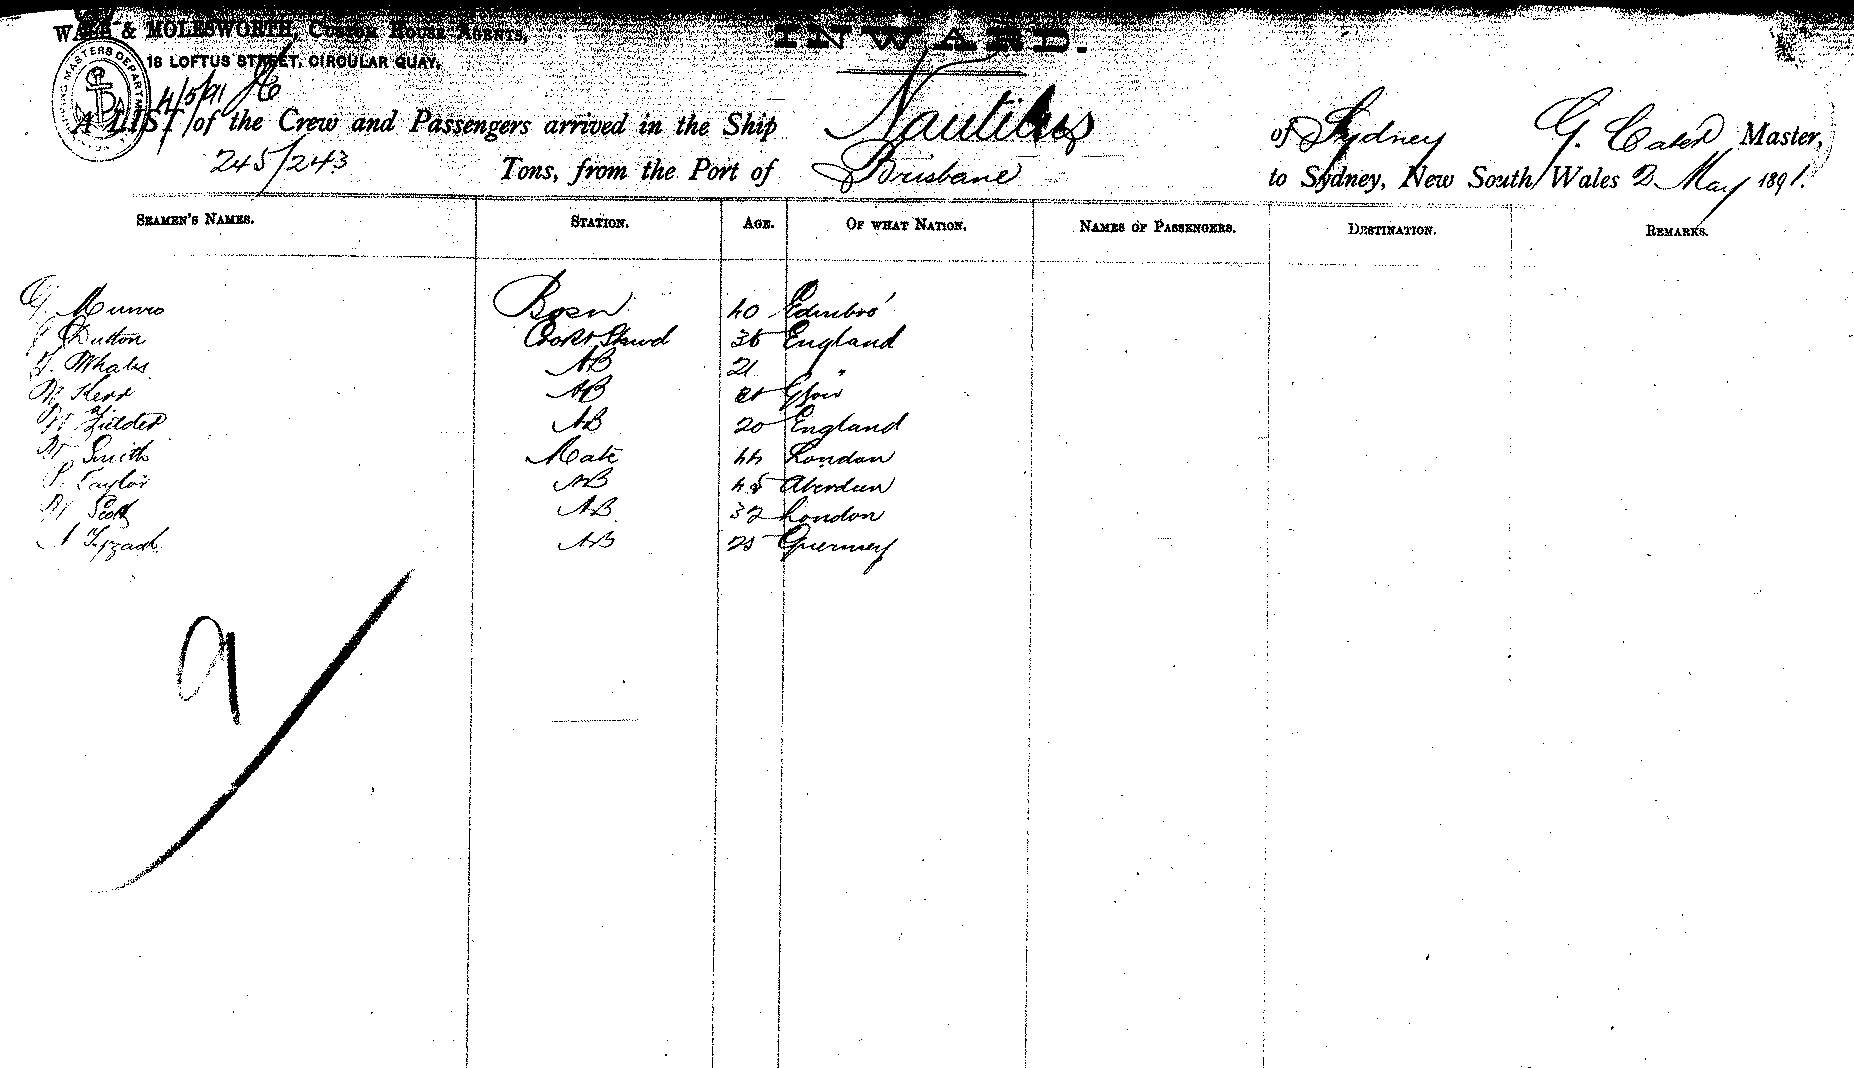 WADE & MOLESWORTH, CUSTOM HOUSE AGENTS,
INWARD.
18 LOFTUS STREET, CIRCULAR QUAY.
SHIPPING MASTERS DEPARTMENT
4/5/91
A LIST of the Crew and Passengers arrived in the Ship Nautilus of Sydney G. Cater Master,
245/243 Tons, from the Port of Brisbane to Sydney, New South Wales 2 May 1891.
SEAMEN'S NAMES. STATION. AGE. OF WHAT NATION. NAMES OF PASSENGERS. DESTINATION. REMARKS.
G. Munro Bosn 40 Edinbro'
Dutton Cook & Stewd 36 England
Whales AB 21 "
W Kerr AB
W Fielder AB 20 England
W Smith Mate 44 London
P. Taylor AB 45 Aberdeen
W Scott AB 32 London
AB 25 Guernsey
9